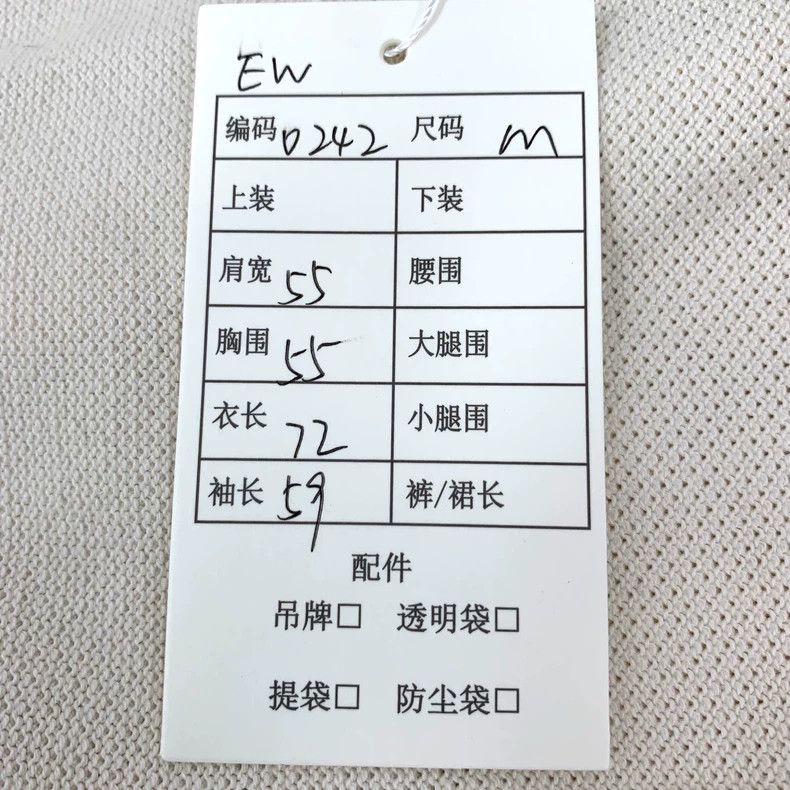 EW
编码 0242 尺码 M
上装 下装
肩宽 55 腰围
胸围 55 大腿围
衣长 72 小腿围
袖长 59 裤/裙长
配件
吊牌□ 透明袋□
提袋□ 防尘袋□